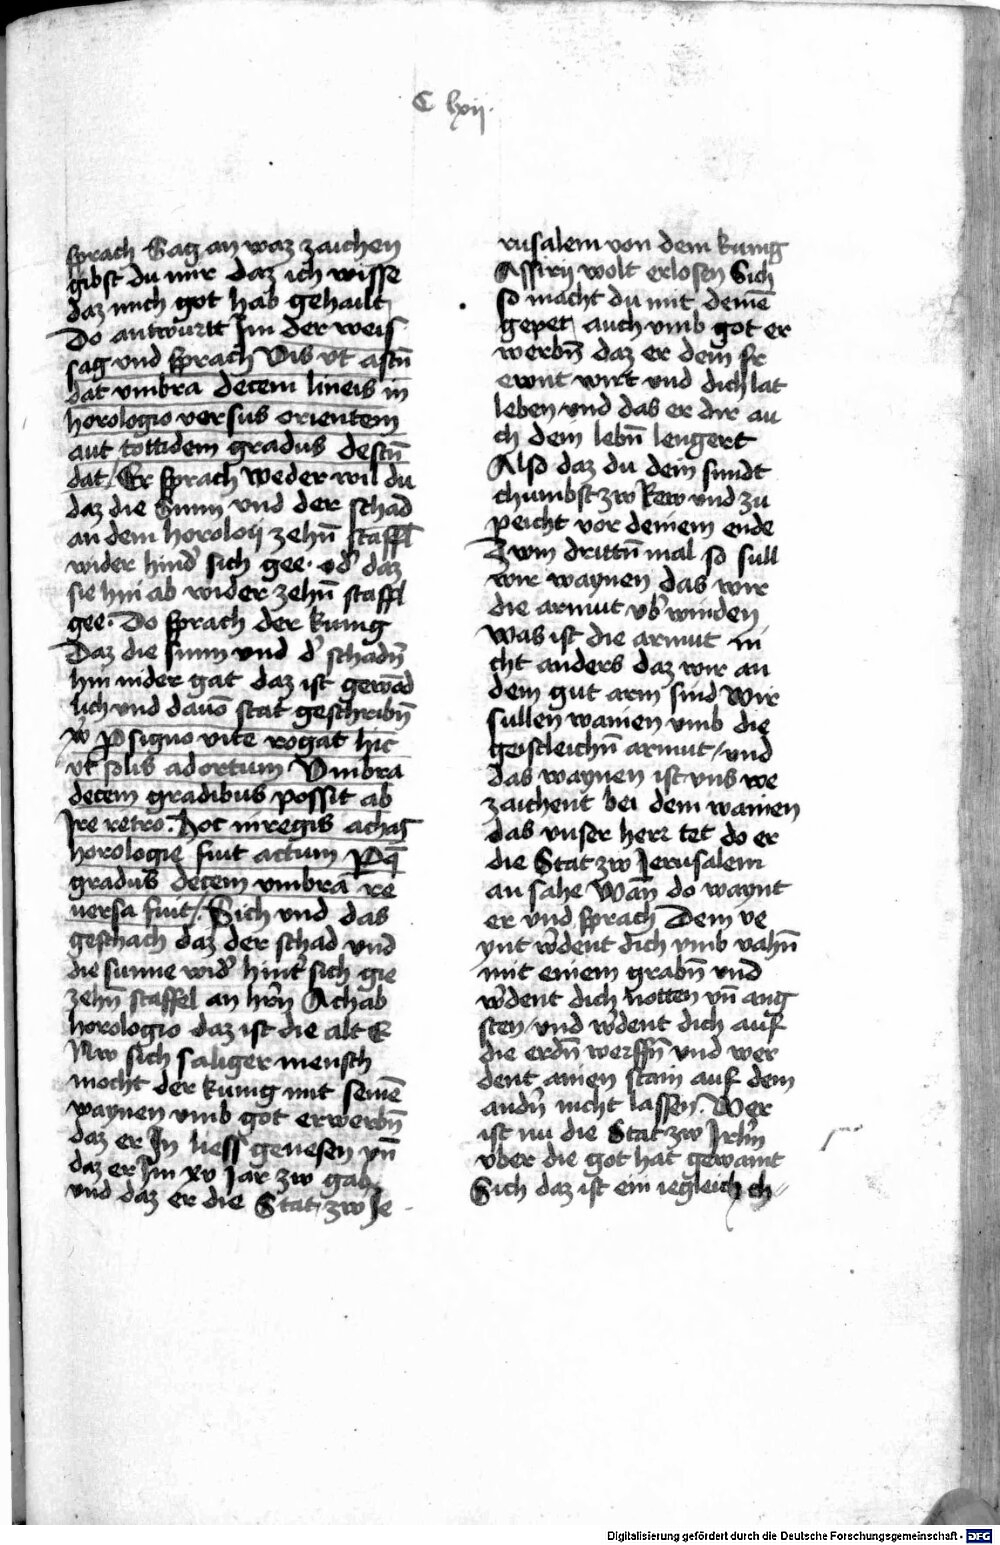 C lxii.
sprach Sag an waz zaichen
gibst du mir daz ich wisse
daz mich got hab gehailt
Do antwurtt Im der weis
sag vnd sprach Vis vt ascēn
dat vmbra decem lineis in
horologio versus orientem
aut tottidem gradus descēn
dat / Er sprach weder wil du
daz die Sunn vnd der schad
an dem horoloij zehn̄ staffl
wider hind̾ sich gee. od̾ daz
sie hin ab wider zehn̄ staffl
gee. Do sprach der kunig
Daz die sunn vnd d̾ schadn̄
hin nider gat daz ist gewōnd
lich vnd dauō stat geschribn̄
P signo vite rogat hic
vt solis ad ortum Vmbra
decem gradibus possit ab
Ire retro. Hoc in regis achas
horologie fuit actum
gradus decem vmbra re
uersa fuit /. Sich vnd das
geschach daz der schad vnd
die sunne wid̾ hint̾ sich gie
zehn̄ staffel an hrn̄ Achab
horologio daz ist die alt E
Nw sich saliger mensch
mocht der kunig mit seinē
waynen vmb got erwerbn̄
daz er In liess genesen vn̄
daz er Im xv Jar zw gab
vnd daz er die Stat zw Je
rusalem von dem kunig
Assirij wolt erlosen Sich
so macht du mit deinē
gepet auch vmb got er
werbn̄ daz er dein fr
ewnt wirt vnd dich lat
leben vnd das er dir au
ch dein lebn̄ lengert
Also daz du dein sundt
chumbst zw Rew vnd zu
peicht vor deinem ende
Zwm drittn̄ mal so sull
wir waynen das wir
die armut vb̾winden
Was ist die armut ni
cht anders daz wir an
dem gut arm sind Wir
sullen wainen vmb die
geistleichn̄ armut / vnd
das waynen ist vns we
zaichent bei dem wainen
das vnser herr tet do er
die Stat zw Jerusalem
an sahe Wan̄ do waynt
er vnd sprach Dein ve
ynt w̾dent dich vmb vahn̄
mit einem grabn̄ vnd
w̾dent dich notten vn̄ ang
sten / vnd w̾dent dich auf
die erdn̄ werffn̄ vnd wer
dent ainen stain auf dem
andn̄ nicht lassen. Wer
ist nu die Stat zw Jrlm̄
vber die got hat gewaint
Sich daz ist ein iegleich ch
Digitalisierung gefördert durch die Deutsche Forschungsgemeinschaft - DFG